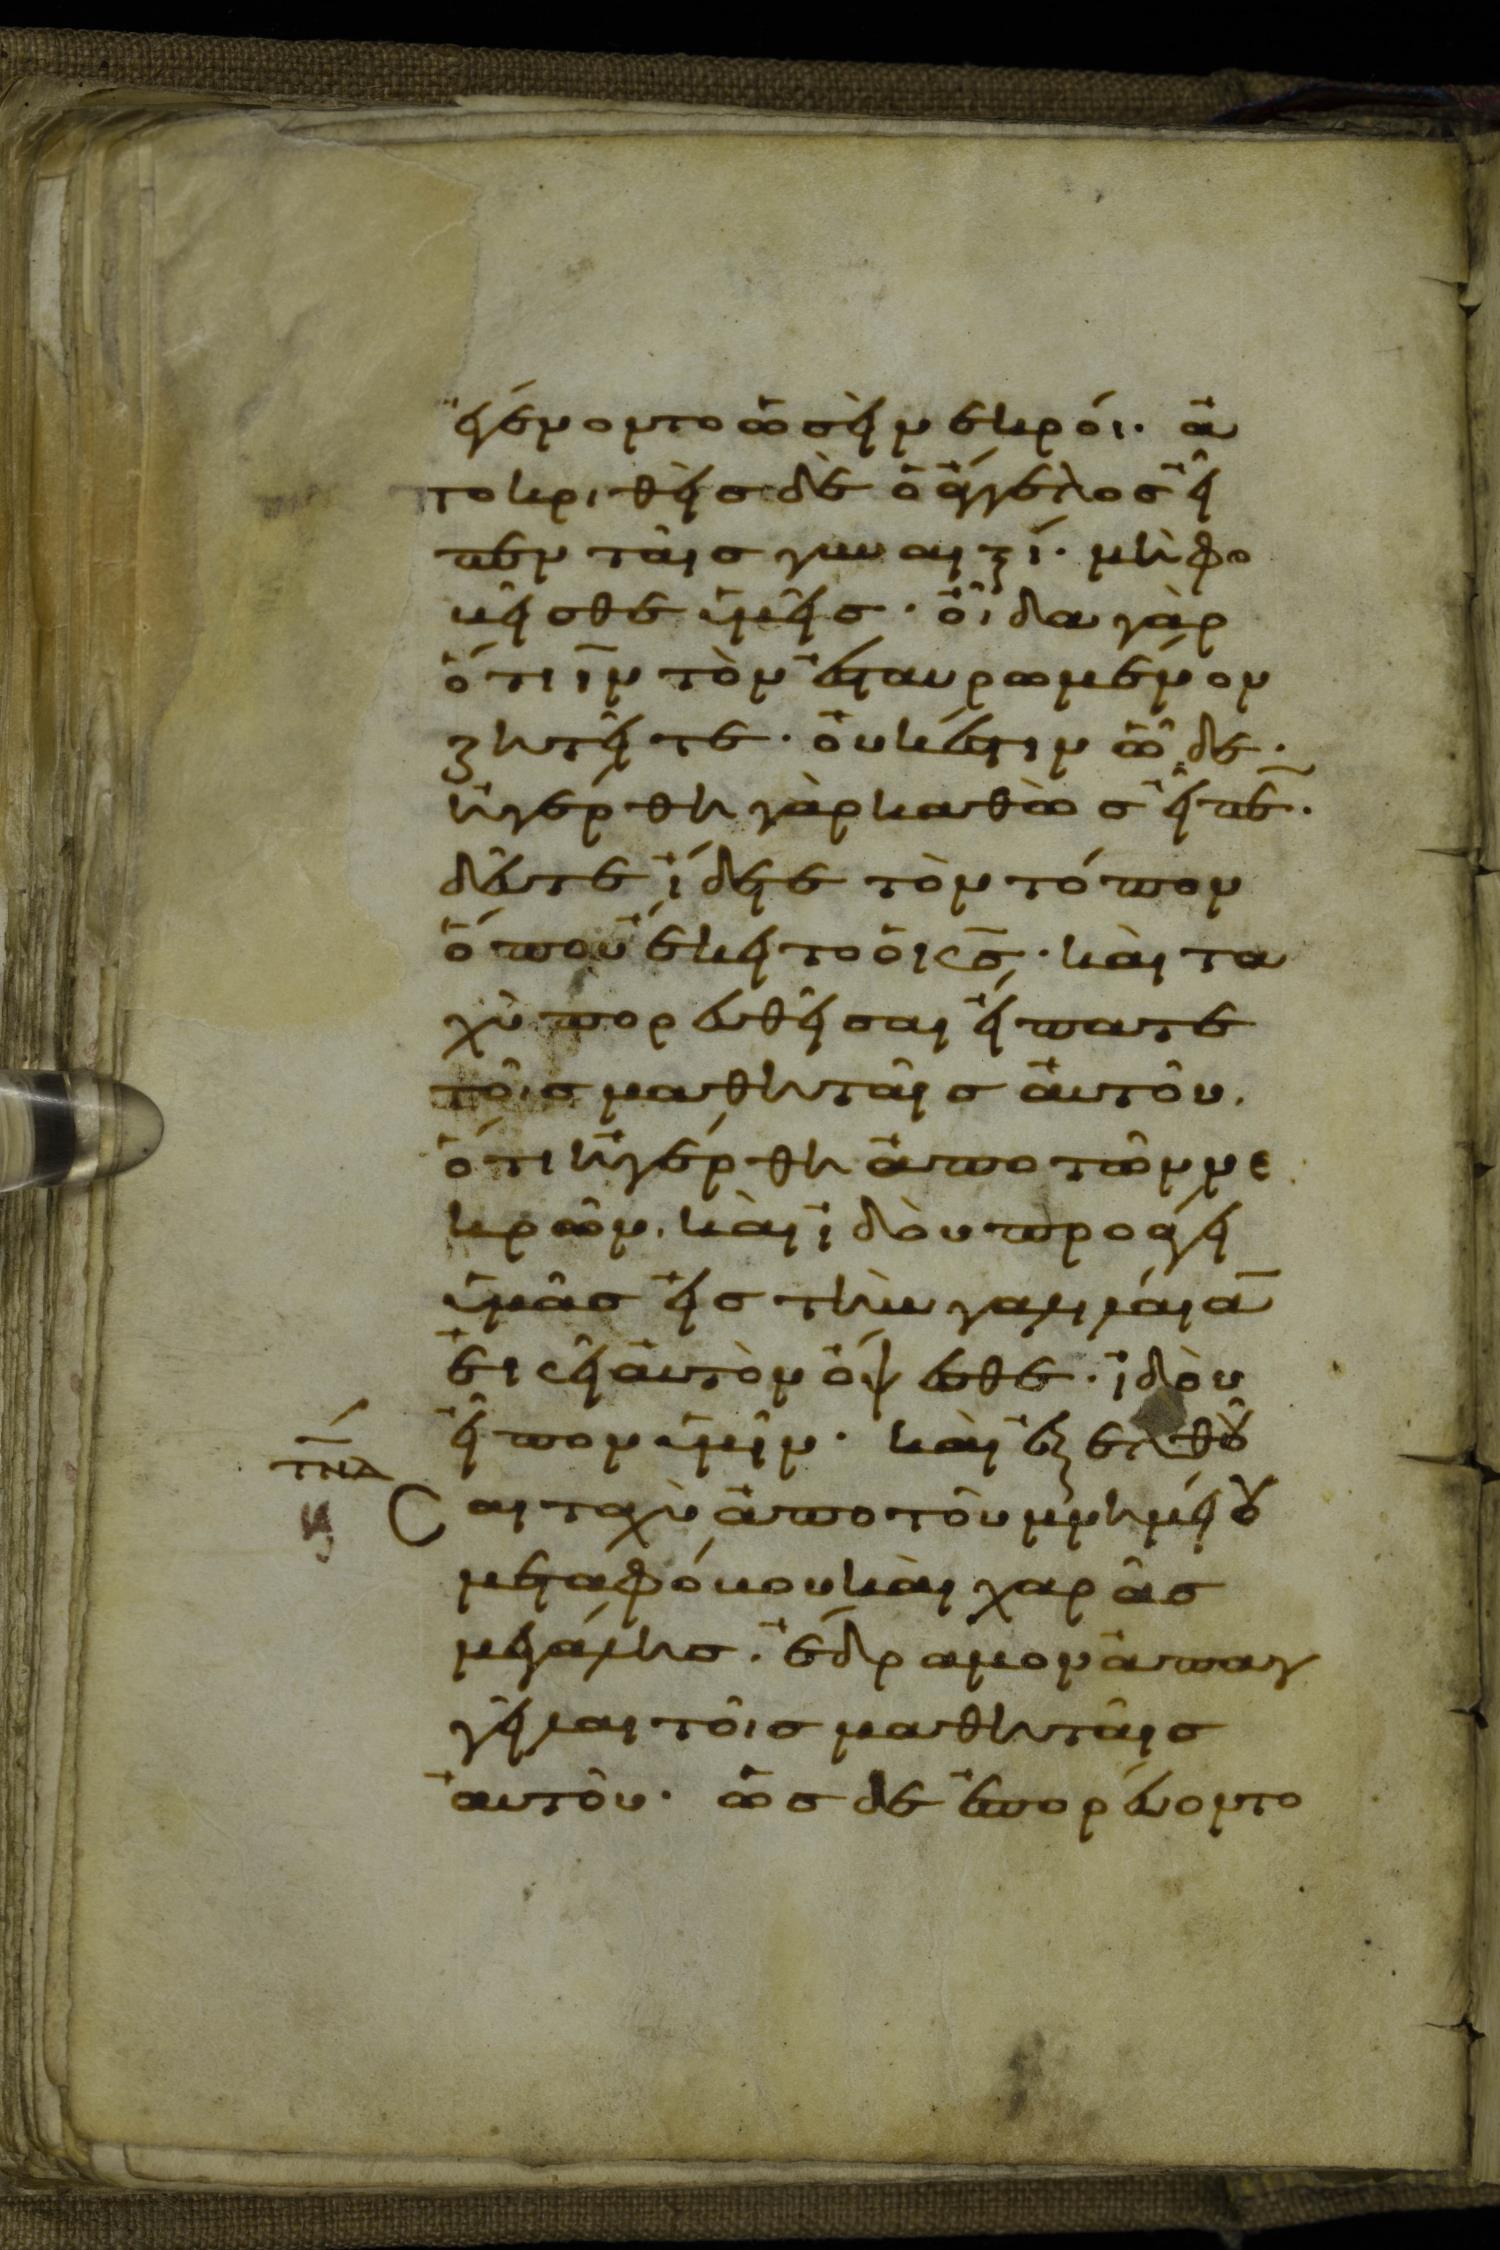 ἐγένοντο ὡσεὶ νεκροί. ἀ
ποκριθεὶς δὲ ὁ ἄγγελος εἶ
πεν ταῖς γυναιξί. μὴ φο
βεῖσθε ὑμεῖς. οἶδα γὰρ
ὅτι ιν τὸν ἐσταυρωμένον
ζητεῖτε. οὐκ ἔστιν ὧδε.
ἠγέρθη γὰρ καθὼς εἶπε.
δεῦτε ἴδετε τὸν τόπον
ὅπου ἔκειτο ὁ ις. καὶ τα
χὺ πορευθεῖσαι εἴπατε
τοῖς μαθηταῖς αὐτοῦ.
ὅτι ἠγέρθη ἀπο τῶν νε
κρῶν. καὶ ἰδοὺ προάγει
ὑμᾶς εἰς τὴν γαλιλαίαν
ἐκεῖ αὐτὸν ὄψεσθε. ἰδοὺ
εἶπον ὑμῖν. καὶ ἐξελθοῦ
σαι ταχὺ ἀπο τοῦ μνημείου
μετα φόβου καὶ χαρᾶς
μεγάλης. ἔδραμον ἀπαγ
γεῖλαι τοῖς μαθηταῖς
αὐτοῦ. ὡς δὲ ἐπορεύοντο
τνδ